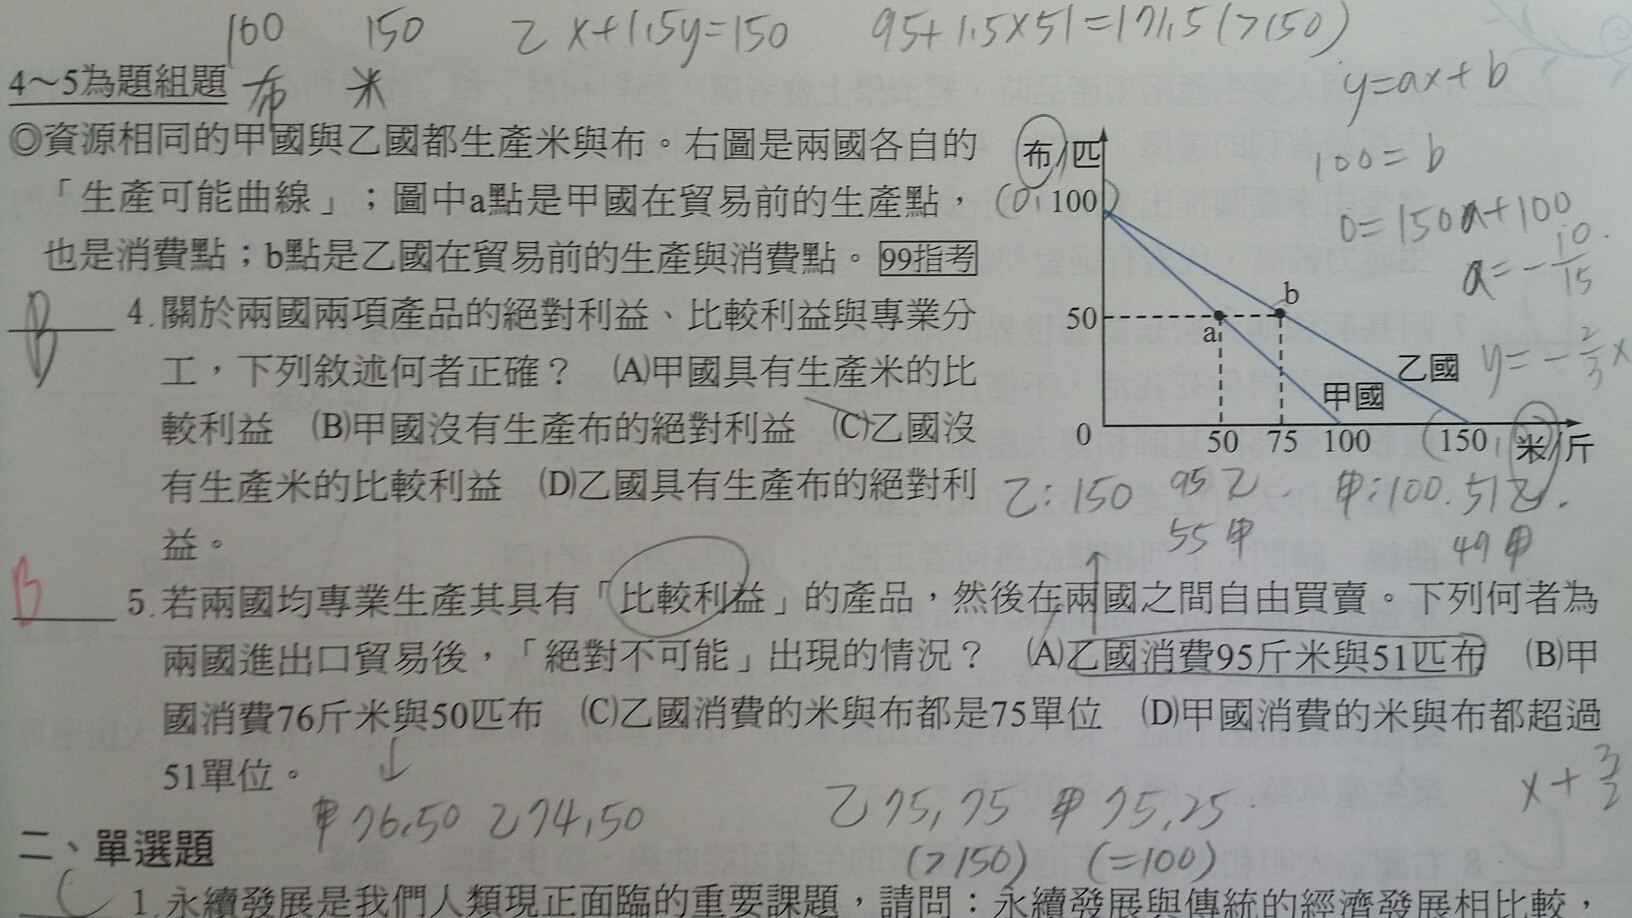 100 150 乙 x+1.5y=150 95+1.5×51=171.5(>150)
4～5為題組題 布 米
y=ax+b
◎資源相同的甲國與乙國都生產米與布。右圖是兩國各自的
「生產可能曲線」；圖中a點是甲國在貿易前的生產點，
也是消費點；b點是乙國在貿易前的生產與消費點。99指考
B 4.關於兩國兩項產品的絕對利益、比較利益與專業分
工，下列敘述何者正確？ (A)甲國具有生產米的比
較利益 (B)甲國沒有生產布的絕對利益 (C)乙國沒
有生產米的比較利益 (D)乙國具有生產布的絕對利
益。
布/匹
100=b
(0, 100)
0=150a+100
a=-10/15
b
50
a
乙國
y=-2/3x
甲國
0 50 75 100 (150, 米/斤
乙:150 95乙 甲:100. 51乙.
55甲 49甲
B 5.若兩國均專業生產其具有「比較利益」的產品，然後在兩國之間自由買賣。下列何者為
兩國進出口貿易後，「絕對不可能」出現的情況？ (A)乙國消費95斤米與51匹布 (B)甲
國消費76斤米與50匹布 (C)乙國消費的米與布都是75單位 (D)甲國消費的米與布都超過
51單位。
x+3/2
甲76,50 乙74,50 乙75,75 甲75,25
(>150) (=100)
二、單選題
C 1.永續發展是我們人類現正面臨的重要課題，請問：永續發展與傳統的經濟發展相比較，